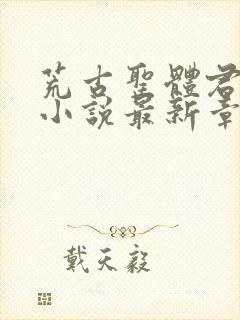 荒古聖體君
小說最新章
戴天毅